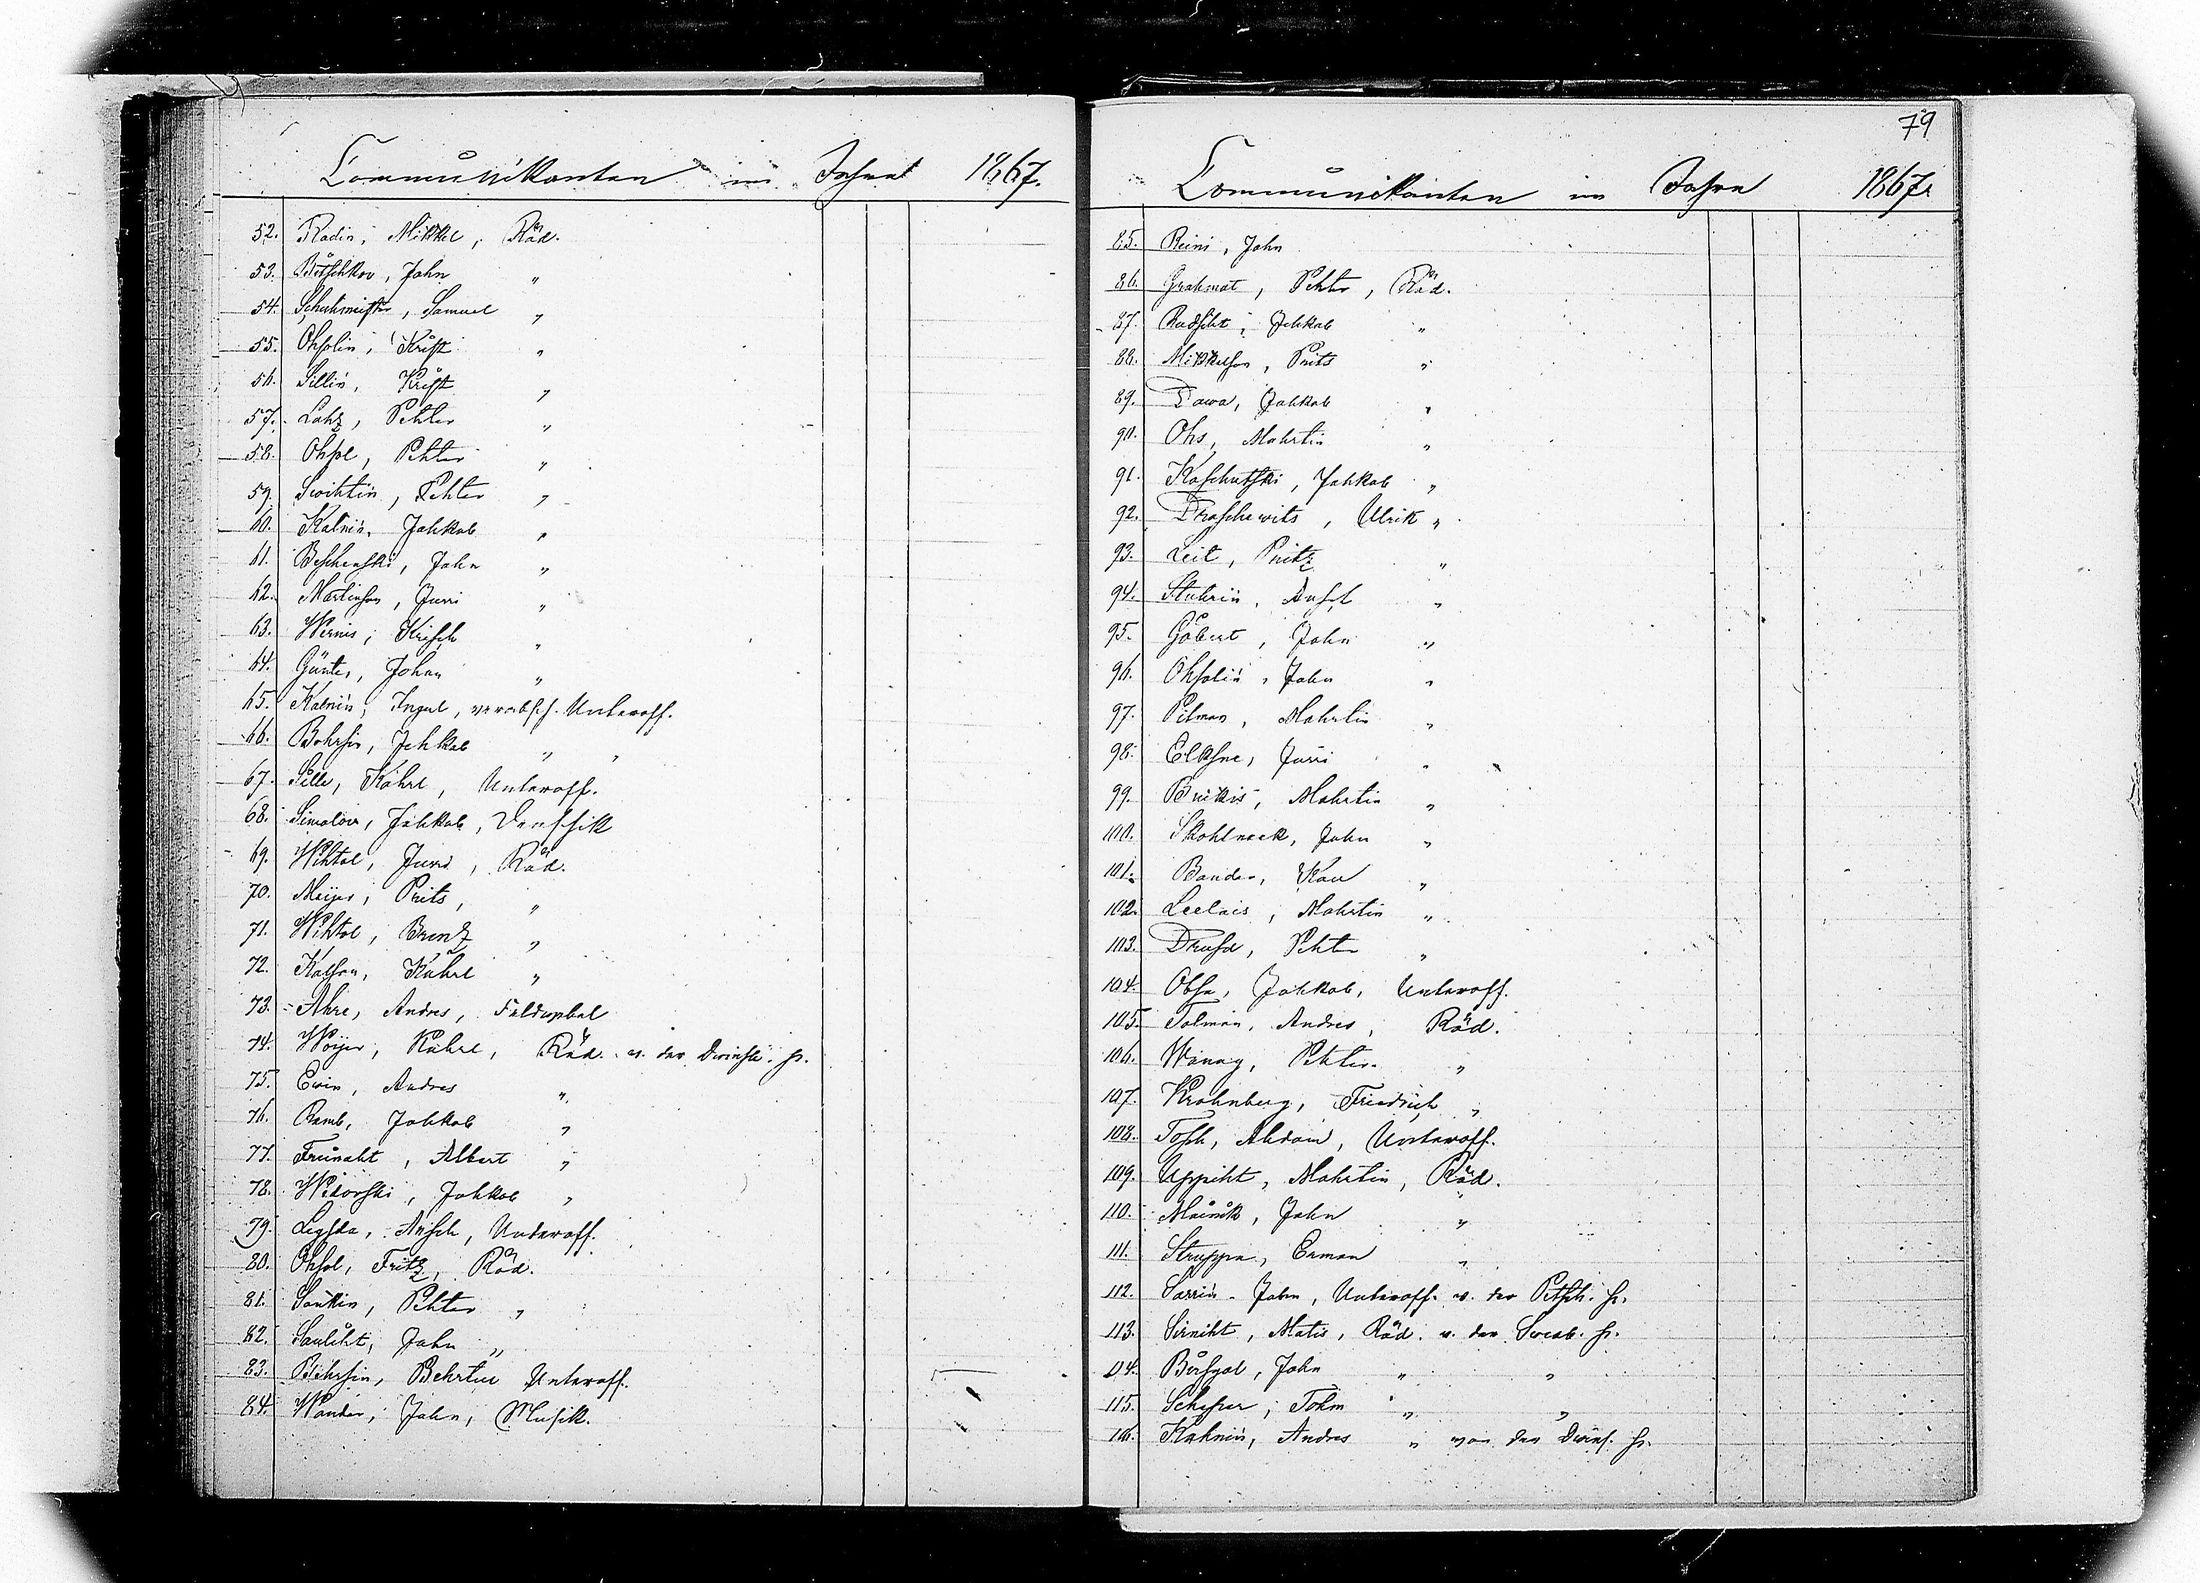 Communikanten im Jahre 1867.
52. Radin, Mikkel, Räd.
53. Betschkov, Jahn "
54. Schuhmeister, Samuel "
55. Ohsolin, Krist "
56. Sillin, Krist "
57. Lahz, Pehter "
58. Ohsol, Pehter "
59. Swihtin, Pehter "
60. Kalnin, Jahkab "
61. Beschenski, Jahn "
62. Martinson, Jurri "
63. Wernis, Krisch "
64. Günter, Johan "
65. Kalnin, Ingul, verabsch. Unteroff.
66. Bohrsin, Jehkab " "
67. Sille, Kahrl, Unteroff.
68. Simolow, Jahkab, Denschik
69. Wihtol, Jurri, Räd.
70. Meijer, Prits, "
71. Wihtol, Brenz "
72. Kalson, Kahrl "
73. Ahre, Andres,
74. Woijer, Kahrl, Räd. v. der Dwinsk. fs.
75. Ewin, Andres "
76. Ramb, Jahkab "
77. Freinaht, Albert "
78. Widowski, Jahkab "
79. Legsda, Ansch, Unteroff.
80. Ohsol, Fritz, Räd.
81. Sankin, Pehter "
82. Sauliht, Jahn "
83. Behrsin, Behrtul Unteroff.
84. Wander, Jahn, Musik.
79
Communikanten im Jahre 1867.
85. Reini, Jahn
86. Grahmat, Pehter, Räd.
87. Rudsiht, Jehkab "
88. Mikkelson, Prits "
89. Dawa, Jahkab "
90. Ohs, Mahrtin "
91. Kaschutski, Jahkab "
92. Draschewits, Ulrik "
93. Leit, Pritz "
94. Stuhrin, Ansch "
95. Göbert, Jahn "
96. Ohsolin, Jahn "
97. Pilman, Mahrtin "
98. Elksne, Jurri "
99. Brikis, Mahrtin "
100. Skohlneek, Jahn "
101. Bander, Kau "
102. Leelais, Mahrtin "
103. Drusa, Pehter "
104. Obse, Jahkab, Unteroff.
105. Tolman, Andres, Räd.
106. Wanag, Pehter. "
107. Krohnberg, Friedrich "
108. Tosch, Ahdam, Unteroff.
109. Uppiht, Mahrtin, Räd.
110. Mainik, Jahn "
111. Struppa, Erman "
112. Sarrin, Jahn, Unteroff. v. der Petsch. fs.
113. Sirniht, Matis, Räd. v. der Sweab. fs.
114. Birsgal, Jahn " "
115. Schepser, Tohm " "
116. Kalnin, Andres " von der Dwins. fs.